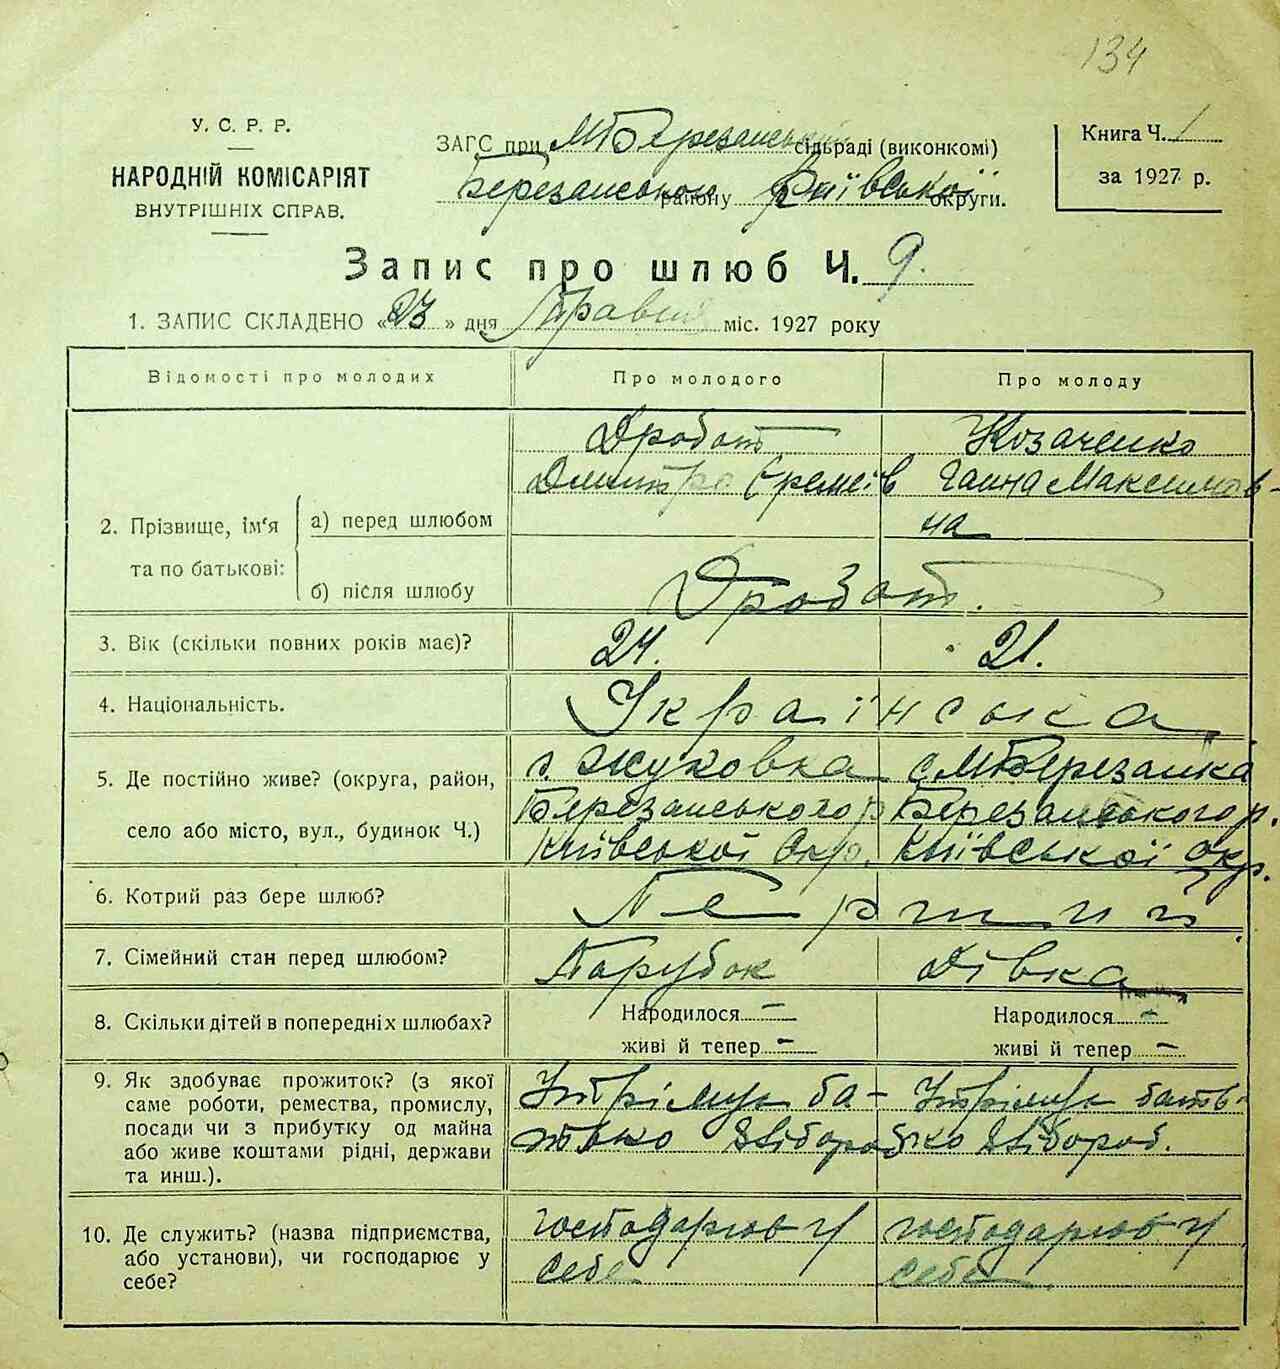 134
У. С. Р. Р.
НАРОДНІЙ КОМІСАРІЯТ
ВНУТРІШНІХ СПРАВ.
ЗАГС при МБерезанській сільраді (виконкомі)
Березанського району Київської округи.
Книга Ч. 1
за 1927 р.
Запис про шлюб Ч. 9.
1. ЗАПИС СКЛАДЕНО «23» дня Травня міс. 1927 року
Відомості про молодих Про молодого Про молоду
2. Прізвище, ім'я та по батькові:
а) перед шлюбом
Дробот
Дмитро Єремеїв
Козаченко
Ганна Максимов-
на
б) після шлюбу
Дробот.
3. Вік (скільки повних років має)? 24. 21.
4. Національність. Українська
5. Де постійно живе? (округа, район,
село або місто, вул., будинок Ч.)
с. Жуковка
Березанського р
Київської Окр.
с МБерезанка
Березанського р.
Київської окр.
6. Котрий раз бере шлюб? Перший
7. Сімейний стан перед шлюбом? Парубок Дівка
8. Скільки дітей в попередніх шлюбах?
Народилося –
живі й тепер –
Народилося –
живі й тепер –
9. Як здобуває прожиток? (з якої
саме роботи, ремества, промислу,
посади чи з прибутку од майна
або живе коштами рідні, держави
та инш.).
Утрімує ба-
тько хлібороб
Утрімує бать-
ко хлібороб.
10. Де служить? (назва підприємства,
або установи), чи господарює у
себе?
господарює у
себе
господарює у
себе